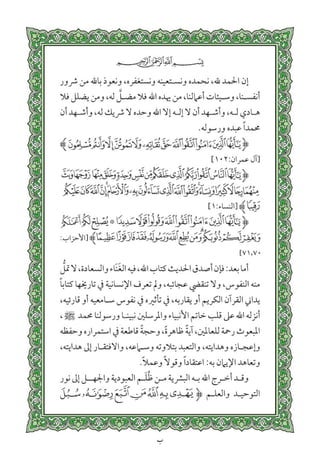 ﷽
إن الحمد لله، نحمده ونستعينه ونستغفره، ونعوذ بالله من شرور
أنفسنا، وسيئات أعمالنا، من يهده الله فلا مضلّ له، ومن يضلل فلا
هادي له، وأشهد أن لا إله إلا الله وحده لا شريك له، وأشهد أن
محمداً عبده ورسوله.
﴿ يَٰٓأَيُّهَا ٱلَّذِينَ ءَامَنُوا۟ ٱتَّقُوا۟ ٱللَّهَ حَقَّ تُقَاتِهِۦ وَلَا تَمُوتُنَّ إِلَّا وَأَنتُم مُّسْلِمُونَ ﴾
[آل عمران:١٠٢]
﴿ يَٰٓأَيُّهَا ٱلنَّاسُ ٱتَّقُوا۟ رَبَّكُمُ ٱلَّذِى خَلَقَكُم مِّن نَّفْسٍ وَٰحِدَةٍ وَخَلَقَ مِنْهَا زَوْجَهَا وَبَثَّ
مِنْهُمَا رِجَالًا كَثِيرًا وَنِسَآءً وَٱتَّقُوا۟ ٱللَّهَ ٱلَّذِى تَسَآءَلُونَ بِهِۦ وَٱلْأَرْحَامَ إِنَّ ٱللَّهَ كَانَ عَلَيْكُمْ
رَقِيبًا ﴾ [النساء:١]
﴿ يَٰٓأَيُّهَا ٱلَّذِينَ ءَامَنُوا۟ ٱتَّقُوا۟ ٱللَّهَ وَقُولُوا۟ قَوْلًا سَدِيدًا * يُصْلِحْ لَكُمْ أَعْمَٰلَكُمْ
وَيَغْفِرْ لَكُمْ ذُنُوبَكُمْ وَمَن يُطِعِ ٱللَّهَ وَرَسُولَهُۥ فَقَدْ فَازَ فَوْزًا عَظِيمًا ﴾ [الأحزاب:
٧١،٧٠]
أما بعد: فإن أصدق الحديث كتاب الله، فيه الغَنَاء والسعادة، لا تملُّ
منه النفوس، ولا تنقضي عجائبه، ولم تعرف الإنسانية في تاريخها كتاباً
يداني القرآن الكريم أو يقاربه، في تأثيره في نفوس سامعيه أو قارئيه،
أنزله الله على قلب خاتم الأنبياء والمرسلين نبينا ورسولنا محمد ﷺ ،
المبعوث رحمة للعالمين، آيةً ظاهرةً، وحجةً قاطعة في استمراره وحفظه
وإعجازه وهدايته، والتعبد بتلاوته وسماعه، والافتقار إلى هدايته،
وتعاهد الإيمان به: اعتقاداً وقولاً وعملاً.
وقد أخرج الله به البشرية من ظُلَم العبودية والجهل إلى نور
التوحيد والعلم ﴿ يَهْدِى بِهِ ٱللَّهُ مَنِ ٱتَّبَعَ رِضْوَٰنَهُۥ سُبُلَ
ب